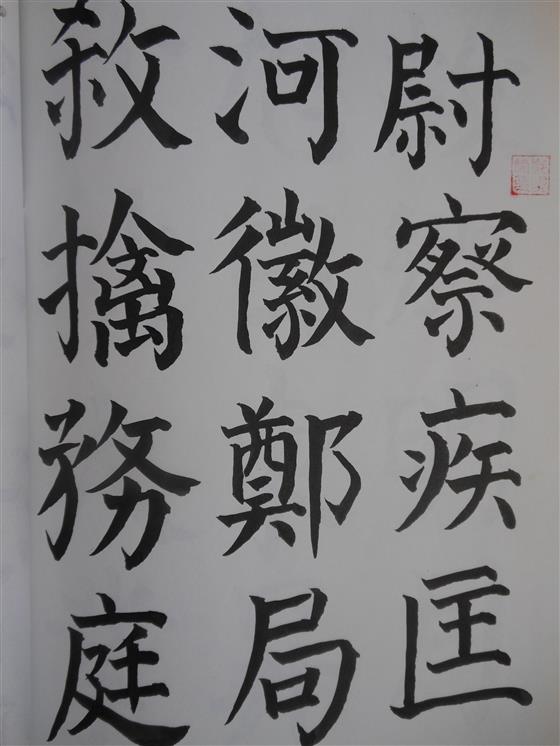 尉察疾匡
河徽鄭局
擒務庭